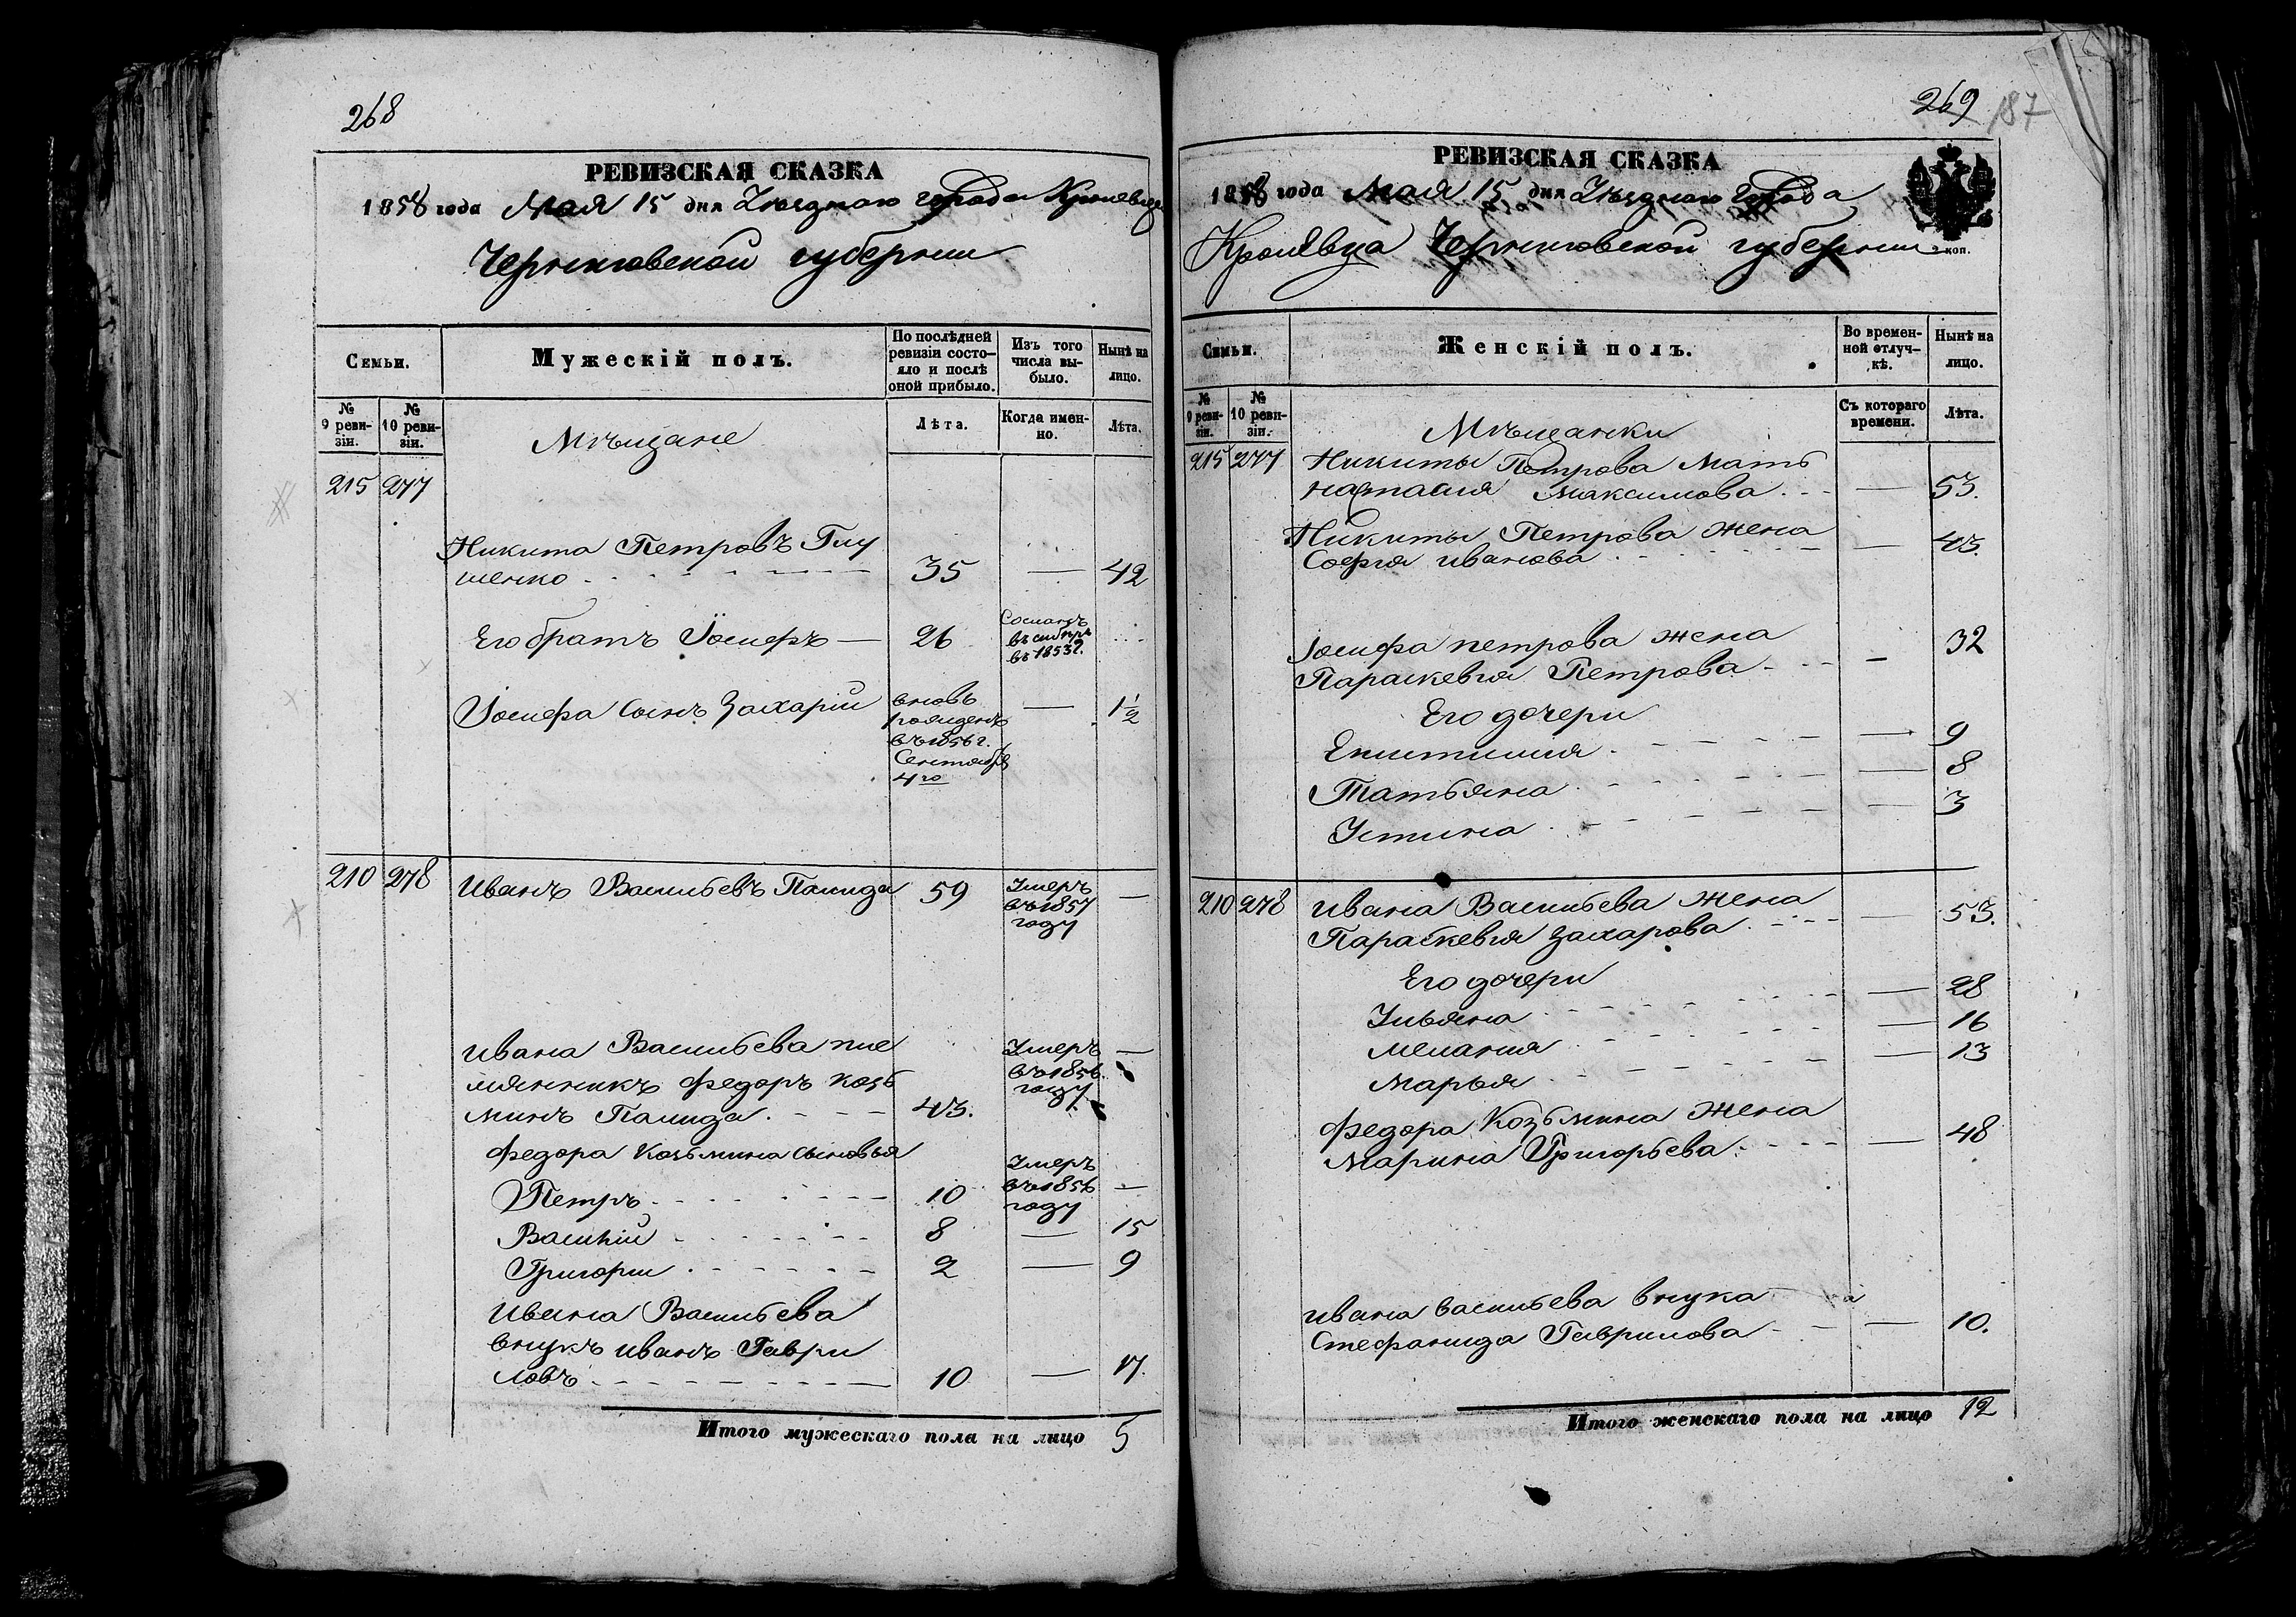 268
РЕВИЗСКАЯ СКАЗКА
1858 года Мая 15 дня Уѣзднаго города Кролевца
Черниговской губернии
Семьи.
Мужескій полъ.
По послѣдней ревизіи состояло и послѣ оной прибыло.
Изъ того числа выбыло.
Нынѣ на лицо.
№ 9 ревизіи.
№ 10 ревизіи.
Лѣта.
Когда именно.
Лѣта.
Мѣщане
215 277
Никита Петровъ Глу
шенко 35 — 42
Его братъ Іосифъ — 26 Сосланъ въ сибирь въ 1853 г.
Іосифа сынъ Захарій вновь рожденъ въ 1856 г. Сентября 4го — 1 1/2
210 278 Иванъ Васильевъ Палида 59 Умеръ въ 1857 году —
Ивана Васильева пле
мянникъ Федоръ Козь
минъ Палида 43. Умеръ въ 1856 году —
Федора Козьмина сыновья
Петръ 10 Умеръ въ 1856 году —
Василій 8 — 15
Григорій 2 — 9
Ивана Васильева
внукъ Иванъ Гаври
ловъ 10 — 17.
Итого мужескаго пола на лицо 5
269 187
РЕВИЗСКАЯ СКАЗКА
1858 года Мая 15 дня Уѣзднаго города
Кролевца Черниговской губернии
коп.
Семьи.
Женскій полъ.
Во временной отлучкѣ.
Нынѣ на лицо.
№ 9 ревизіи.
№ 10 ревизіи.
Съ котораго времени.
Лѣта.
Мѣщанки
215 277 Никиты Петрова Мать
Наталия Максимова — 53.
Никиты Петрова жена
София Иванова — 43.
Іосифа Петрова жена
Параскевия Петрова — 32
Его дочери
Епистимия — 9
Татьяна — 8
Устина — 3
210 278 Ивана Васильева Жена
Параскевия Захарова — 53.
Его дочери
Ульяна — 28
Мелания — 16
Марья — 13
Федора Козьмина Жена
Марина Григорьева — 48
Ивана Васильева внука
Стефанида Гаврилова — 10.
Итого женскаго пола на лицо 12